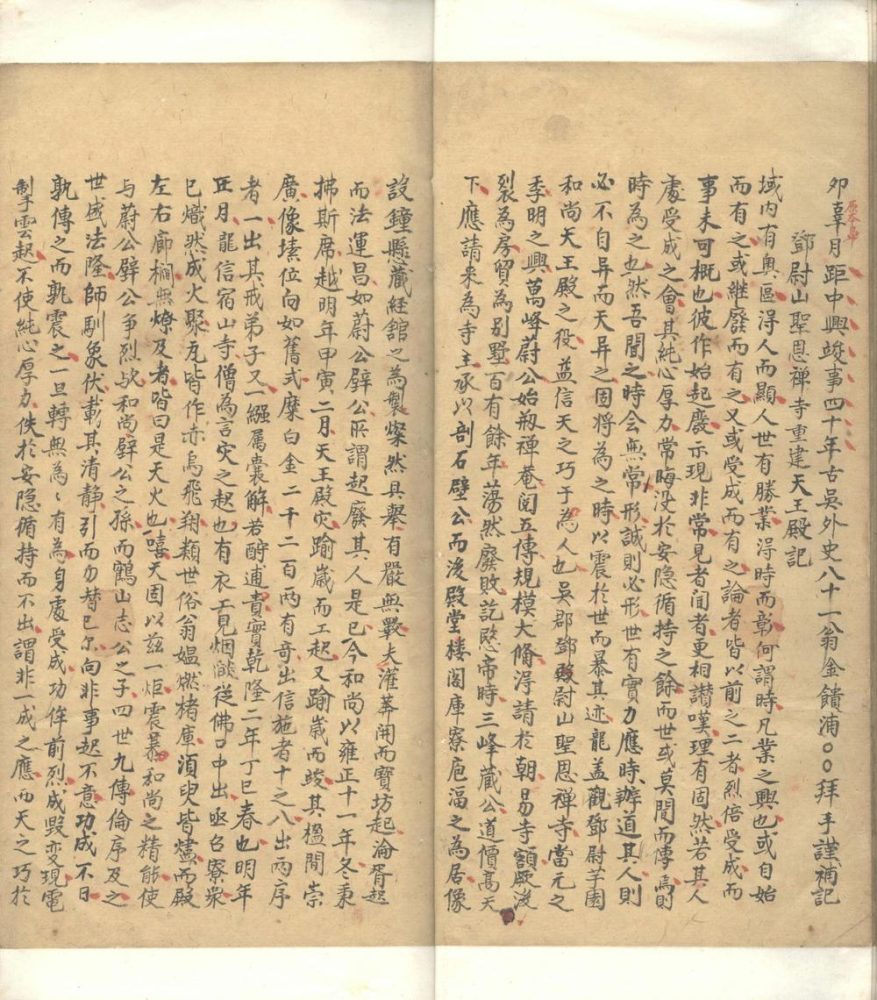 卯辜月距中興竣事四十年古吳外史八十一翁金饋浦〇〇拜手謹補記
鄧尉山聖恩禪寺重建天王殿記
域内有奧區得人而顯人世有勝業得時而彰何謂時凡業之興也或自始
而有之或継廢而有之又或受成而有之論者皆以前之二者烈倍受成而
事未可概也彼作始起廢示現非常見者聞者更相讃嘆理有固然若其人
處受成之會其純心厚力常晦没於安隐循持之餘而世或莫聞而傳焉則
時為之也然吾聞之時会無常形誠則必形世有實力應時辦道其人則
必不自异而天异之固將為之時以震於世而暴其迹龍盖觀鄧尉芉園
和尚天王殿之役益信天之巧于為人也吳郡鄧尉山聖恩禪寺當元之
季明之興萬峰蔚公始剏禪菴閲五傳規模大偹淂請於朝易寺額厥後
裂為房貿為别墅百有餘年蕩然廢敗訖愍帝時三峰藏公道價髙天
下應請来為寺主承以剖石壁公而後殿堂楼閣庫寮庖湢之為居像
設鐘縣藏経舘之為製燦然具舉有嚴無斁夫灌莽開而寶坊起淪胥起
而法運昌如蔚公壁公所謂起廢其人是已今和尚以雍正十一年冬秉
拂斯席越明年甲寅二月天王殿灾踰嵗而工起又踰嵗而竣其楹間崇
廣像塐位向如舊式糜白金二千二百两有竒出信施者十之八出两序
者一出其戒弟子又一繦属囊解若酧逋責實乾隆二年丁巳春也明年
正月龍信宿山寺僧為言灾之起也有衣工見烟燄從佛口中出亟召寮衆
已熾然成火聚瓦皆作赤烏飛翔類世俗翁媪燃楮庫湏臾皆燼而殿
左右廊櫩無燎及者皆曰是天火也嘻天固以兹一炬震暴和尚之精能使
与蔚公壁公争烈欤和尚壁公之孫而鶴山志公之子四世九傳倫序及之
世盛法隆師馴象伏載其清静引而勿替已尔向非事起不意功成不日
孰傳之而孰震之一旦轉無為〻有為身處受成功侔前烈成毁变現電
掣雲起不使純心厚力佚於安隐循持而不出謂非一成之應而天之巧於